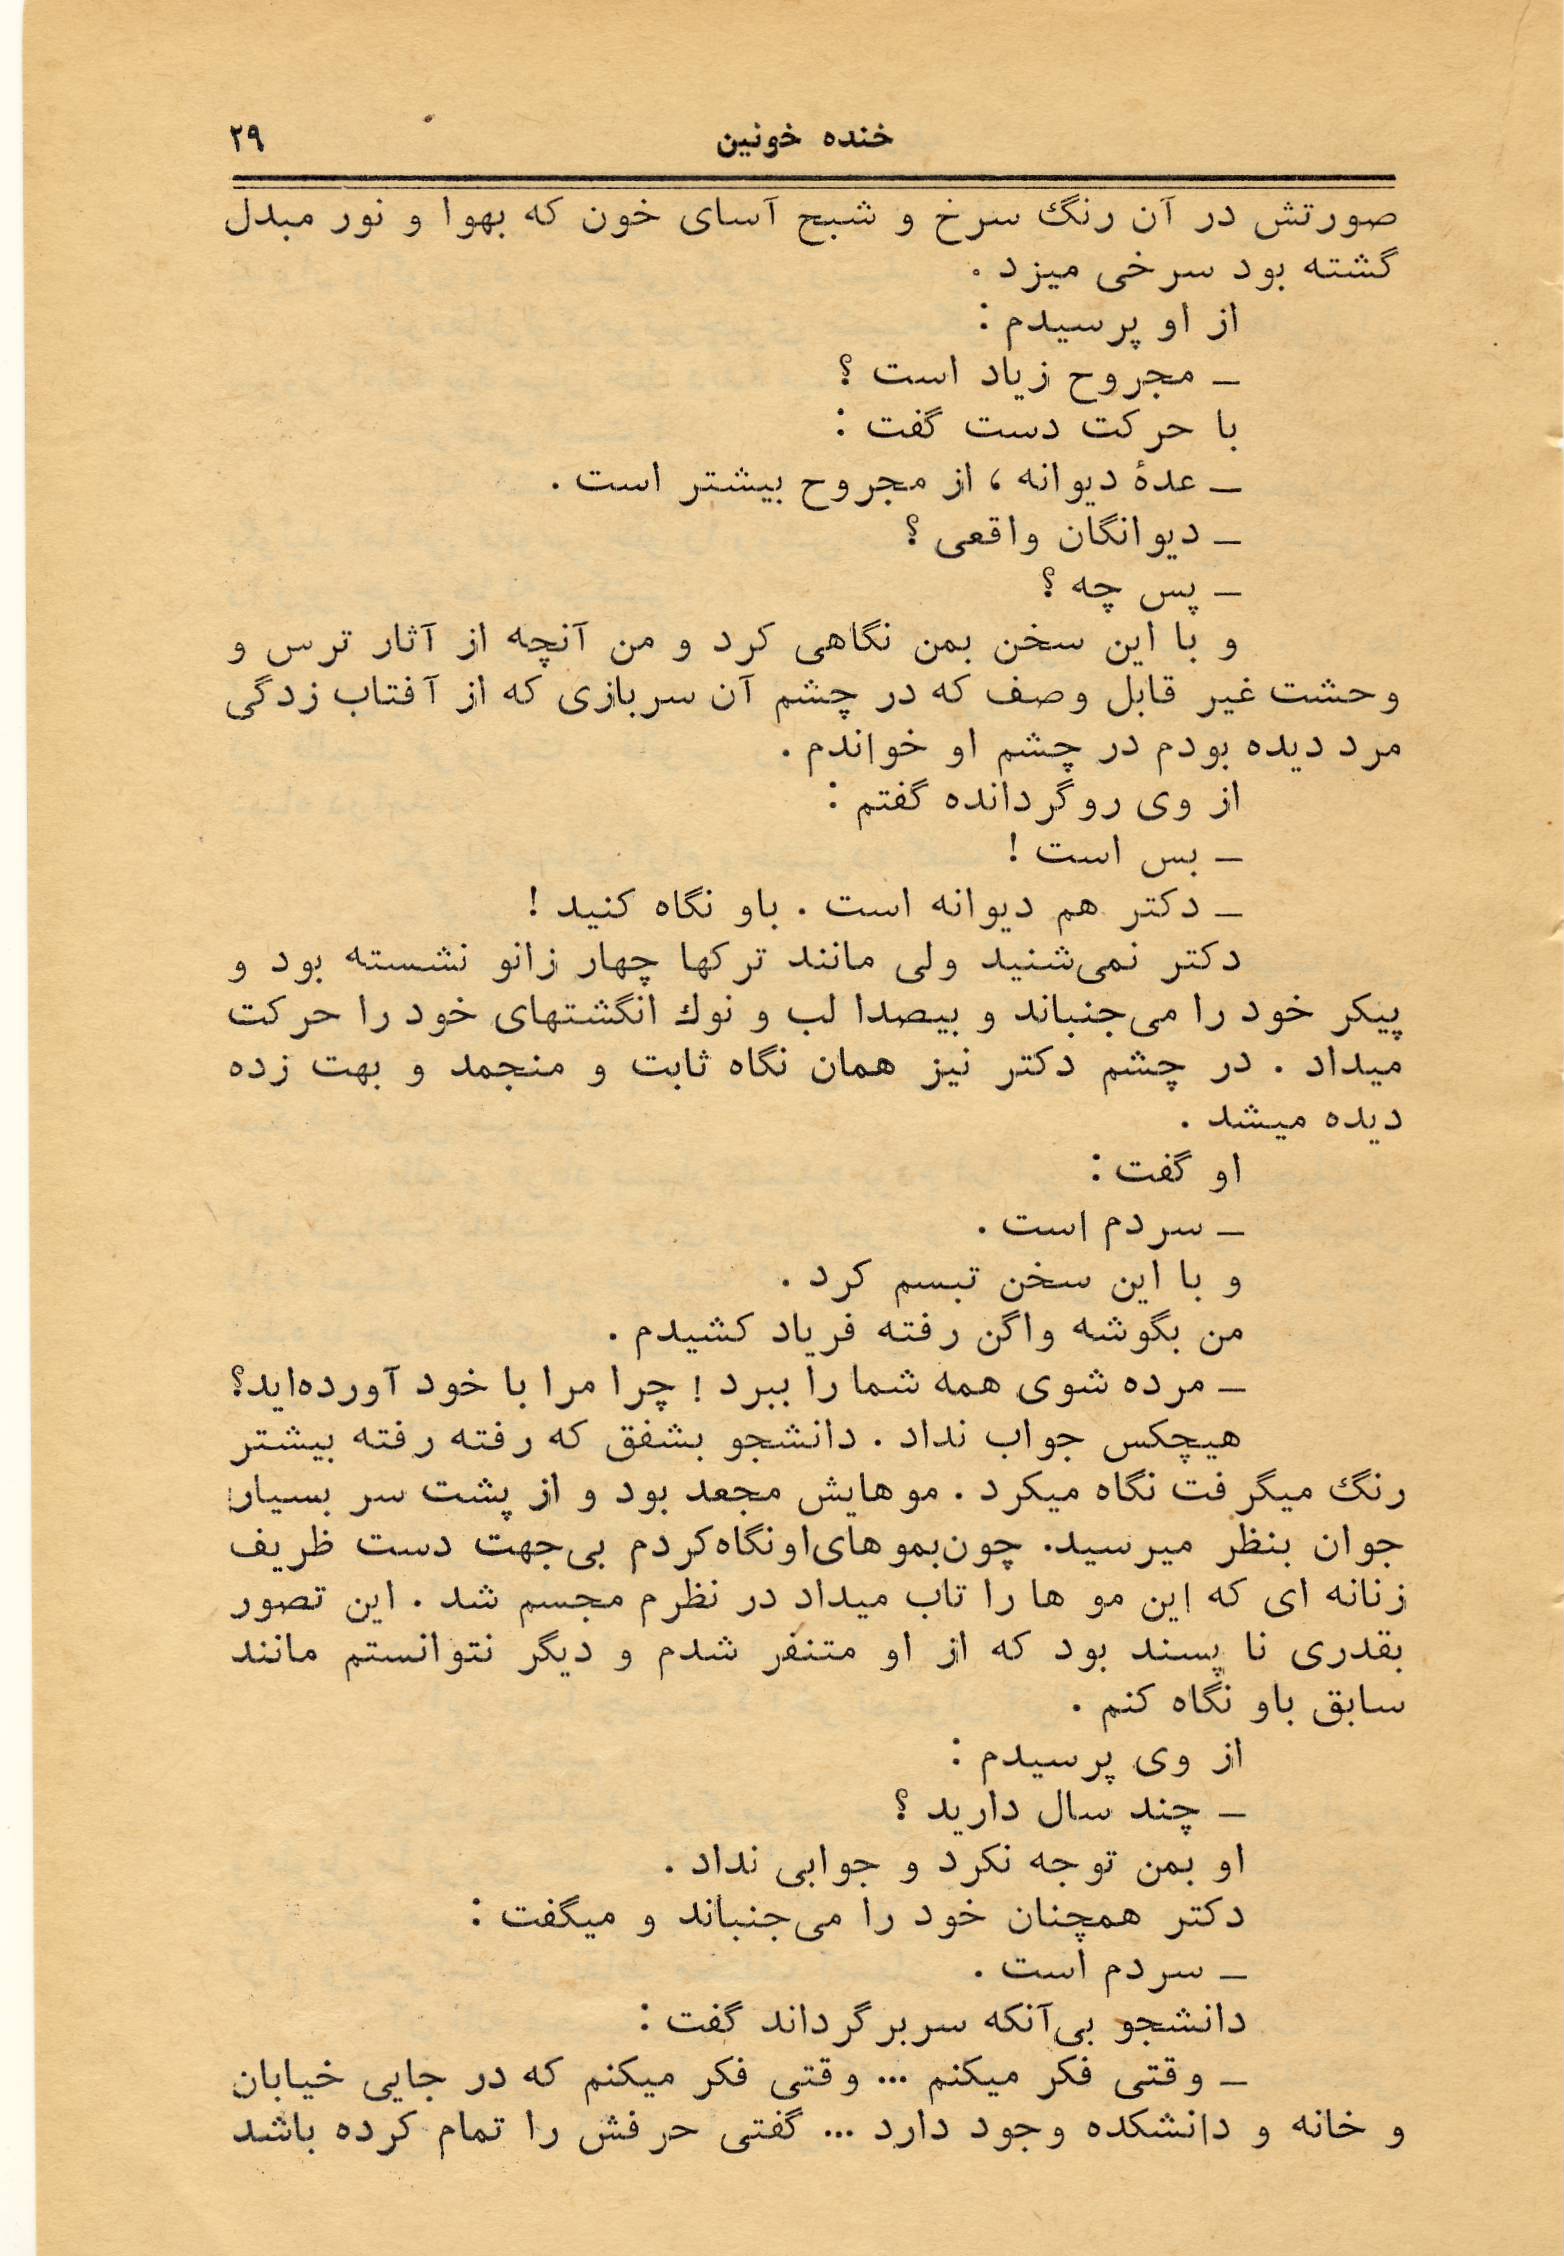 خنده خونین ۲۹
صورتش در آن رنگ سرخ و شبح آسای خون که بهوا و نور مبدل
گشته بود سرخی میزد .
از او پرسیدم :
ـ مجروح زیاد است ؟
با حرکت دست گفت :
ـ عدهٔ دیوانه ، از مجروح بیشتر است .
ـ دیوانگان واقعی ؟
ـ پس چه ؟
و با این سخن بمن نگاهی کرد و من آنچه از آثار ترس و
وحشت غیر قابل وصف که در چشم آن سربازی که از آفتاب زدگی
مرد دیده بودم در چشم او خواندم .
از وی روگردانده گفتم :
ـ بس است !
ـ دکتر هم دیوانه است . باو نگاه کنید !
دکتر نمی‌شنید ولی مانند ترکها چهار زانو نشسته بود و
پیکر خود را می‌جنباند و بیصدا لب و نوك انگشتهای خود را حرکت
میداد . در چشم دکتر نیز همان نگاه ثابت و منجمد و بهت زده
دیده میشد .
او گفت :
ـ سردم است .
و با این سخن تبسم کرد .
من بگوشه واگن رفته فریاد کشیدم .
ـ مرده شوی همه شما را ببرد ! چرا مرا با خود آورده‌اید؟
هیچکس جواب نداد . دانشجو بشفق که رفته رفته بیشتر
رنگ میگرفت نگاه میکرد . موهایش مجعد بود و از پشت سر بسیار
جوان بنظر میرسید. چون‌بموهای‌اونگاه‌کردم بی‌جهت دست ظریف
زنانه ای که این مو ها را تاب میداد در نظرم مجسم شد . این تصور
بقدری نا پسند بود که از او متنفر شدم و دیگر نتوانستم مانند
سابق باو نگاه کنم .
از وی پرسیدم :
ـ چند سال دارید ؟
او بمن توجه نکرد و جوابی نداد .
دکتر همچنان خود را می‌جنباند و میگفت :
ـ سردم است .
دانشجو بی‌آنکه سربرگرداند گفت :
ـ وقتی فکر میکنم ... وقتی فکر میکنم که در جایی خیابان
و خانه و دانشکده وجود دارد ... گفتی حرفش را تمام کرده باشد